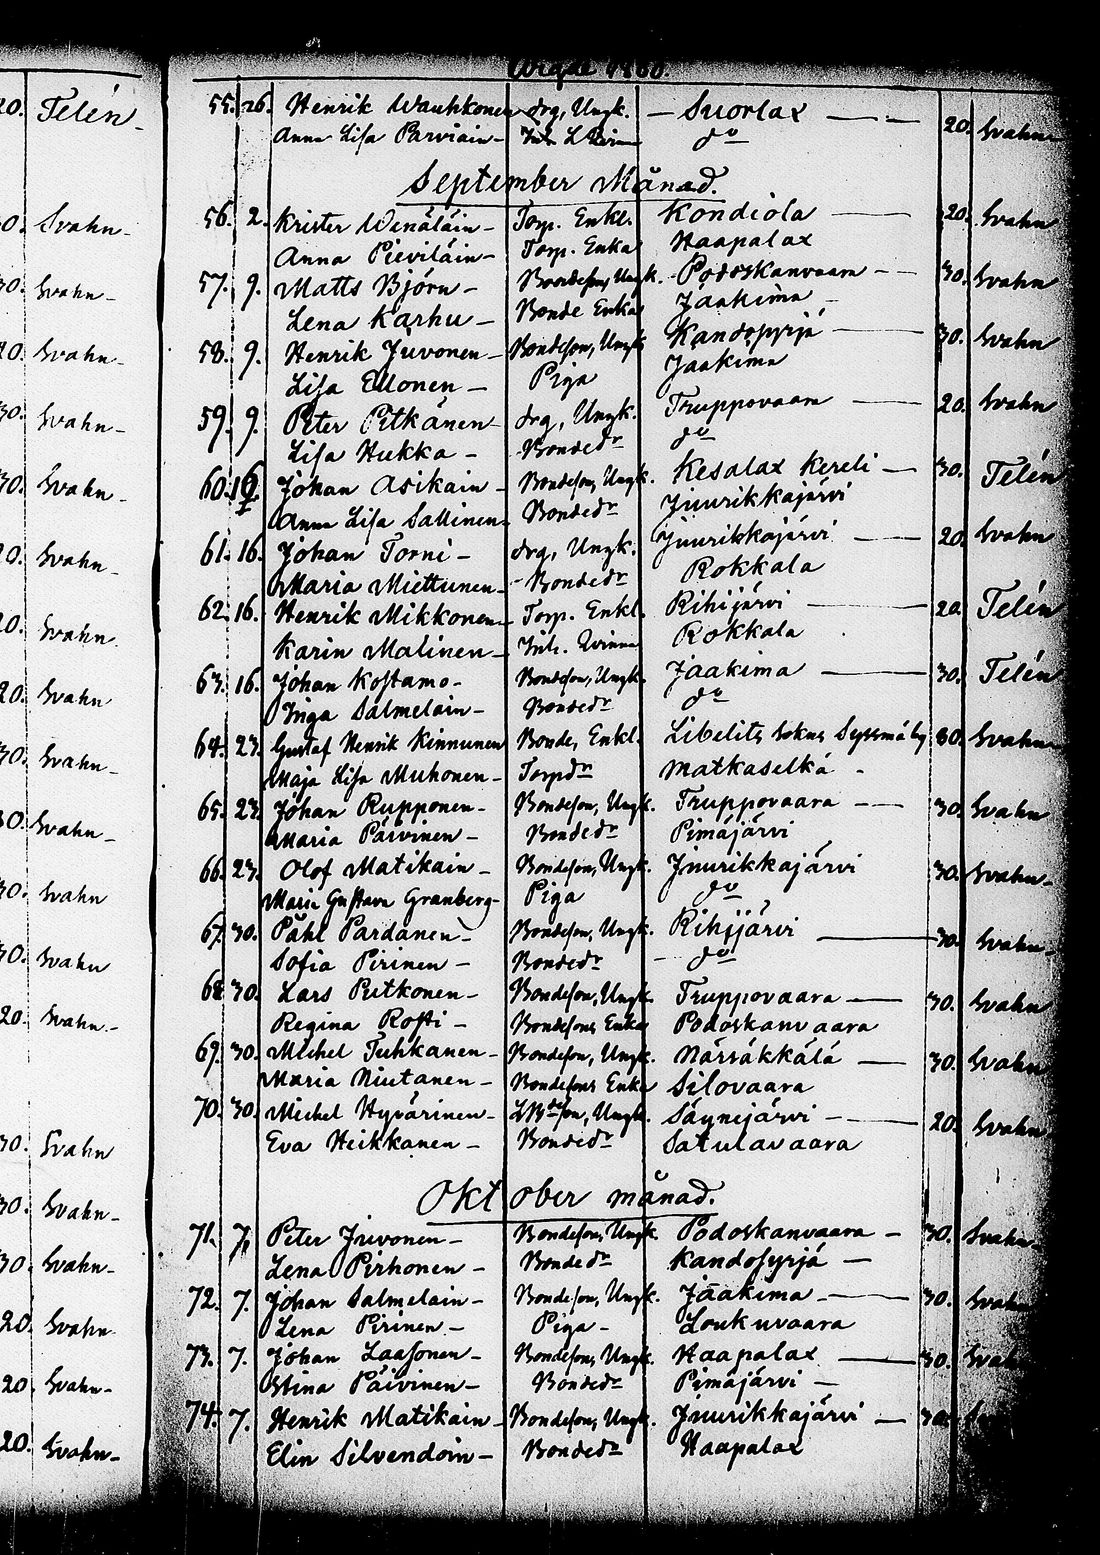 20. Telén
55. 26. Henrik Wauhkonen drg, Ungk. - Suorlax 20. Svahn
Anna Lisa Parviain- Inh. do
September Månad.
0. Svahn-
56. 2. Krister Wenäläin- Torp. Enkl. Kondiola 20. Svahn
Anna Pieviläin- Torp. Enka Haapalax
30. Svahn-
57. 9. Matts Björn- Bondeson, Ungk. Podoskanvaara 30. Svahn
Lena Karhu- Bonde Enka Jaakima
20. Svahn-
58. 9. Henrik Juvonen- Bondeson, Ungk Kandosyrjä 30. Svahn
Lisa Ellonen- Piga Jaakima
30. Svahn-
59. 9. Peter Pitkänen- drg, Ungk. Truppovaara 20. Svahn
Lisa Hukka- Bondedr do
30. Svahn-
60. 16. Johan Asikain- Bondeson, Ungk. Kesalax Kereli 30. Telén
Anna Lisa Sallinen- Bondedr Juurikkajärvi
20. Svahn-
61. 16. Johan Torni- drg, Ungk. Juurikkajärvi 20. Svahn
Maria Miettunen- Bondedr Rokkala
20. Svahn.
62. 16. Henrik Mikkonen- Torp. Enkl. Rihijärvi 20. Telén
Karin Malinen- Inh. Rokkala
20. Svahn-
63. 16. Johan Kostamo- Bondeson, Ungk. Jaakima 30. Telén
Inga Salmelain- Bondedr do
30. Svahn-
64. 23. Gustaf Henrik Kinnunen Bonde, Enkl. Libelits Sokns Syssmäby 30. Svahn
Maja Lisa Muhonen- Torpdr Matkaselkä
30. Svahn-
65. 23. Johan Rupponen- Bondeson, Ungk. Truppovaara 30. Svahn
Maria Päivinen- Bondedr Pimäjärvi
30. Svahn
66. 23. Olof Matikain- Bondeson, Ungk. Juurikkajärvi 30. Svahn-
Maria Gustava Granberg- Piga do
30. Svahn
67. 30. Påhl Pardanen- Bondeson, Ungk. Rihijärvi 30. Svahn
Sofia Pirinen- Bondedr do
20. Svahn.-
68. 30. Lars Putkonen- Bondeson, Ungk. Truppovaara 30. Svahn
Regina Rosti- Bondesons Enka Podoskanvaara
69. 30. Michel Tuhkanen- Bondeson, Ungk. Närsäkkälä 30. Svahn
Maria Niutanen- Bondesons Enka Silovaara
70. 30. Michel Hyvärinen- Ungk. Säynejärvi 20. Svahn
30. Svahn
Eva Heikkanen- Bondedr Satulavaara
30. Svahn-
Oktober månad.
71. 7. Peter Juvonen- Bondeson, Ungk. Podoskanvaara- 30. Svahn-
30. Svahn-
Lena Pirhonen- Bondedr Kandosyrjä
72. 7. Johan Salmelain- Bondeson, Ungk. Jaakima 30. Svahn
20. Svahn
Lena Pirinen- Piga- Loukuvaara
73. 7. Johan Laasonen- Bondeson, Ungk. Haapalax 30. Svahn
20. Svahn-
Stina Päivinen- Bondedr Pimäjärvi-
74. 7. Henrik Matikain- Bondeson, Ungk. Juurikkajärvi- 30.
20. Svahn-
Elin Silvendoin- Bondedr Haapalax